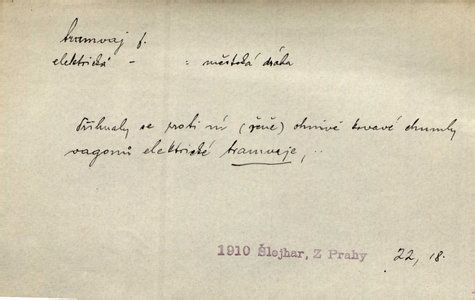 tramvaj f.
elektrická – = městská dráha
Přihnaly se proti ní (řece) ohnivě krvavé chumly
vagonů elektrické tramvaje, ..
1910 Šlejhar, Z Prahy 22, 18.